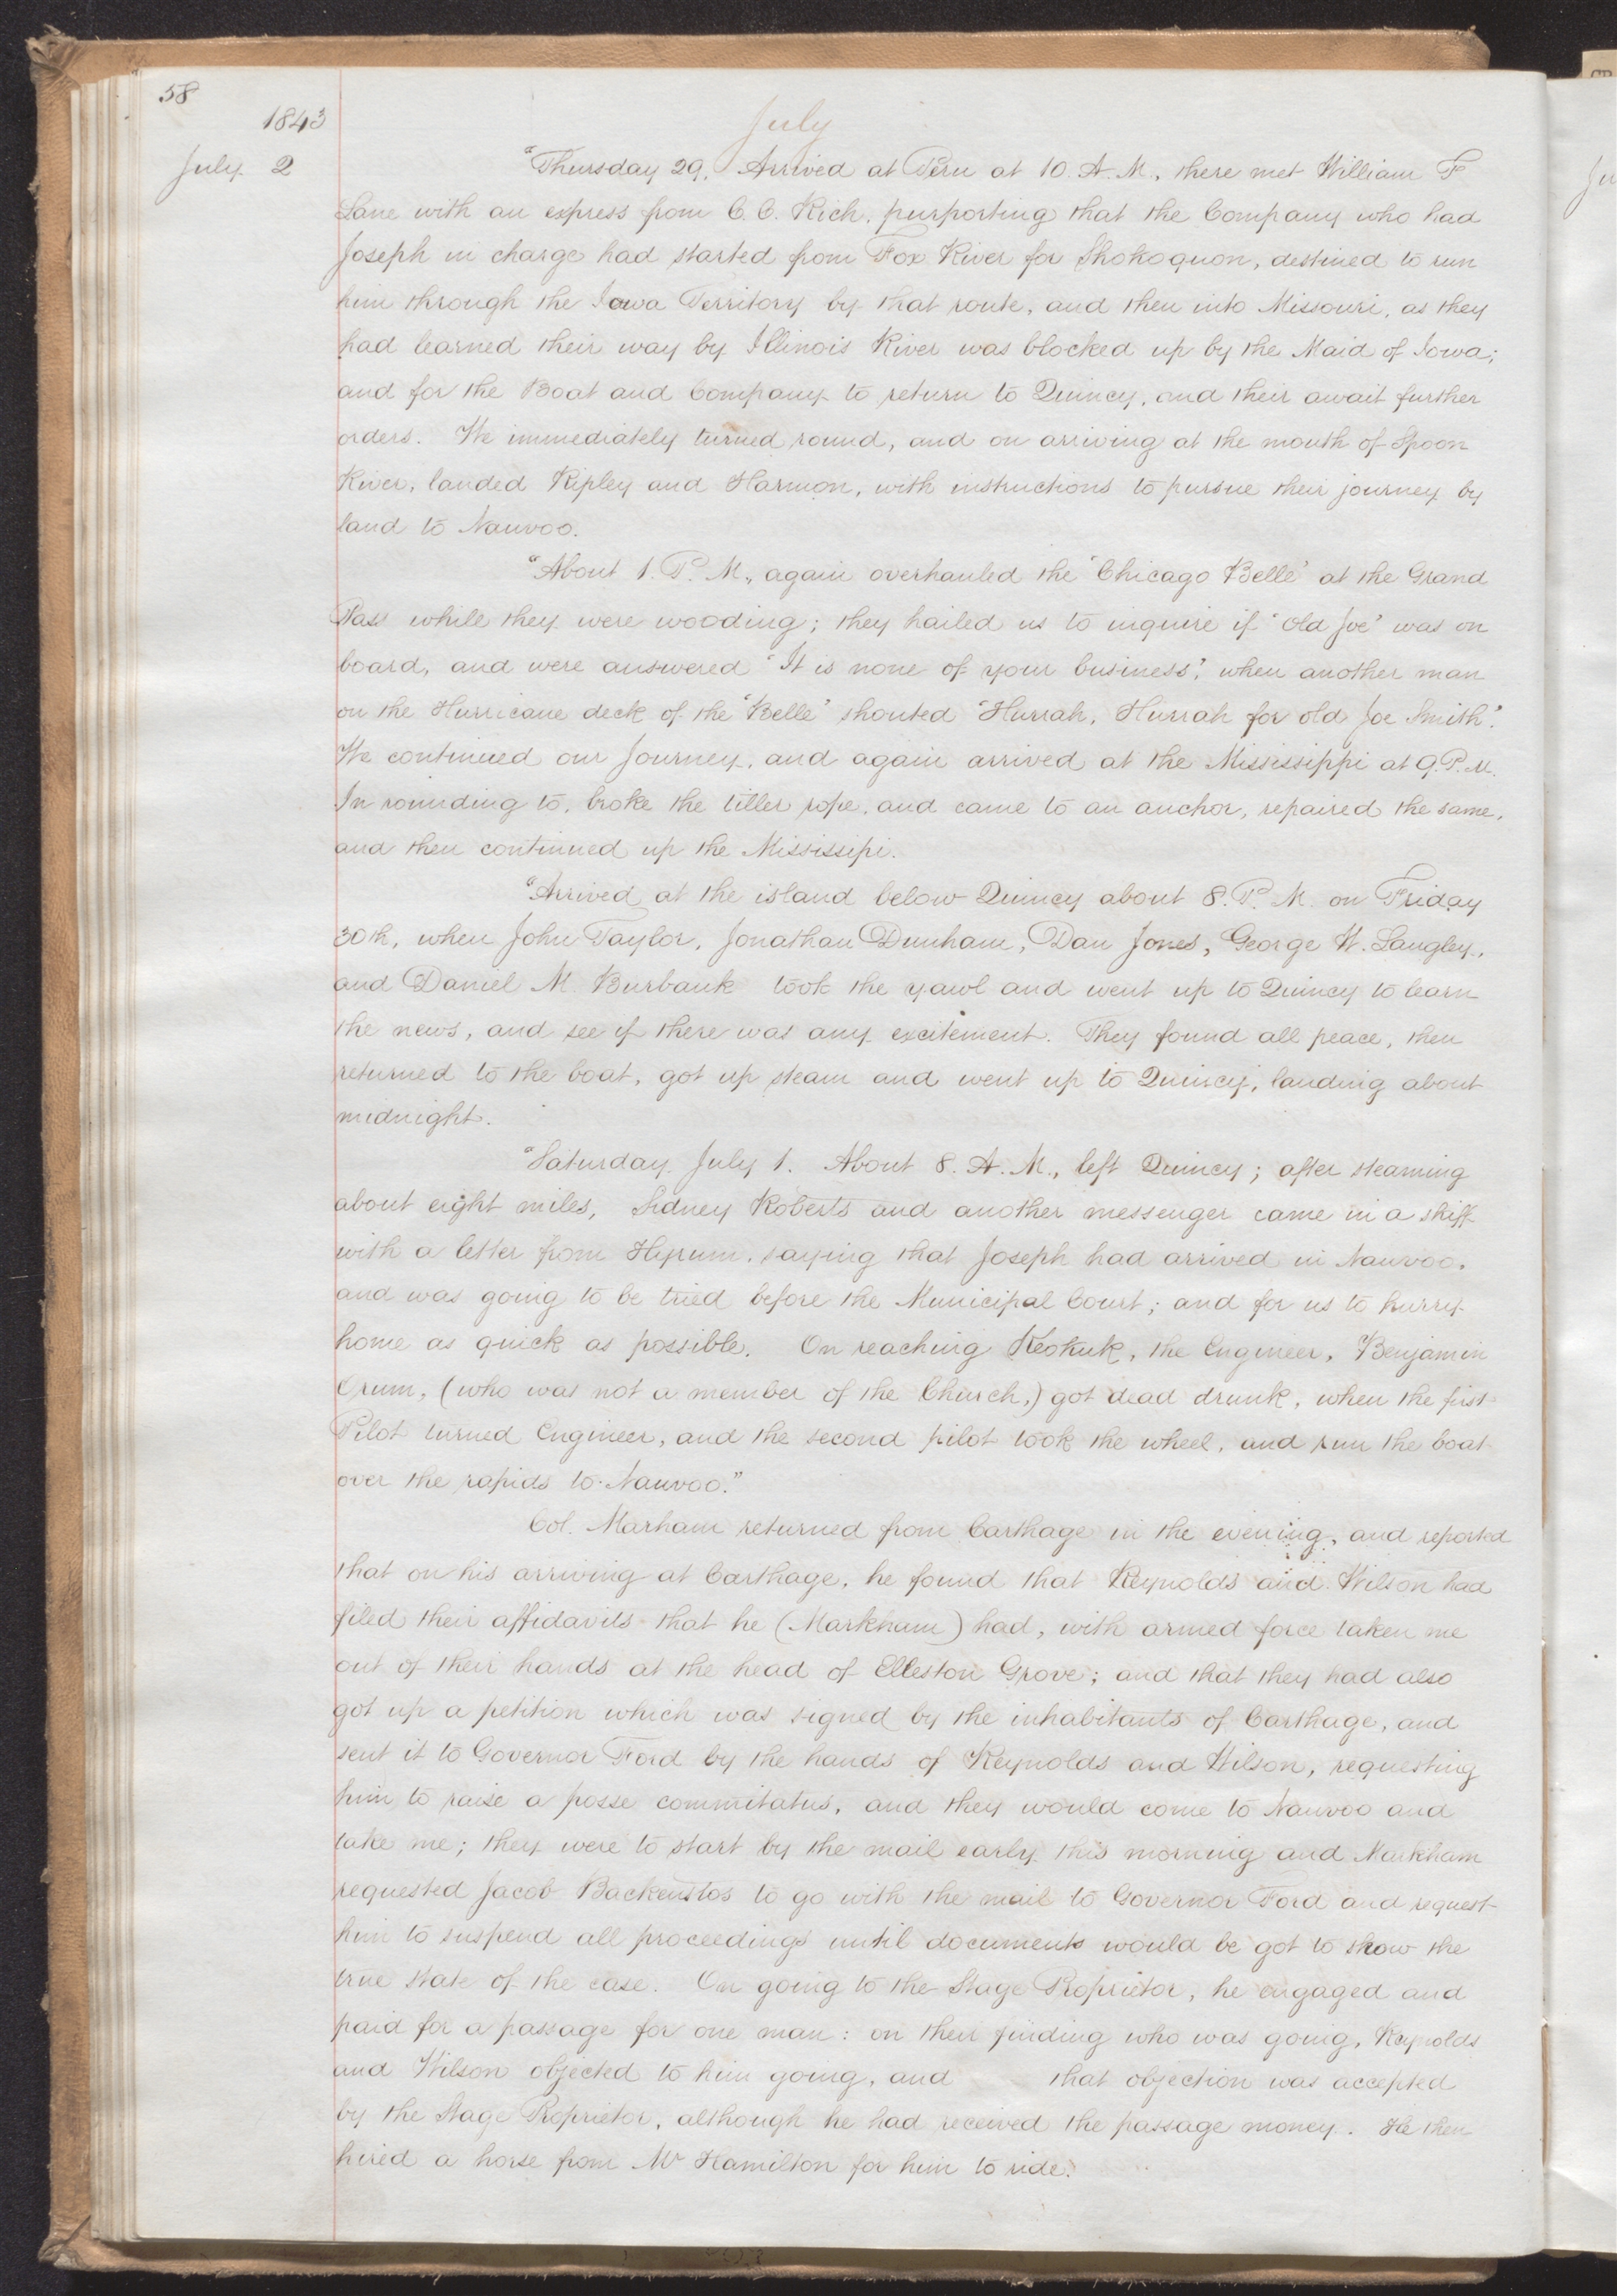 58
1843
July
July 2
"Thursday 29, Arrived at Peru at 10. A. M., there met William F
Lane with an express from C. C. Rich, purporting that the Company who had
Joseph in charge had started from Fox River for Shokoquon, destined to run
him through the Iowa Territory by that route, and then into Missouri, as they
had learned their way by Illinois River was blocked up by the Maid of Iowa;
and for the Boat and Company to return to Quincy, and their await further
orders. We immediately turned round, and on arriving at the mouth of Spoon
River, landed Ripley and Harmon, with instructions to pursue their journey by
land to Nauvoo.
"About 1. P. M., again overhauled the "Chicago Belle" at the Grand
Pass while they were wooding; they hailed us to inquire if "old Joe" was on
board, and were answered "It is none of your business", when another man
on the Hurricane deck of the "Belle" shouted "Hurrah, Hurrah for old Joe Smith".
We continued our Journey, and again arrived at the Mississippi at 9. P. M.
In rounding to, broke the tiller rope, and came to an anchor, repaired the same,
and then continued up the Mississipi.
"Arrived at the island below Quincy about 8. P. M. on Friday
30th, when John Taylor, Jonathan Dunham, Dan Jones, George W. Langley,
and Daniel M. Burbank took the yawl and went up to Quincy to learn
the news, and see if there was any excitement. They found all peace, then
returned to the boat, got up steam and went up to Quincy, landing about
midnight.
"Saturday July 1. About 8. A. M., left Quincy; after steaming
about eight miles, Sidney Roberts and another messenger came in a skiff
with a letter from Hyrum, saying that Joseph had arrived in Nauvoo,
and was going to be tried before the Municipal Court; and for us to hurry
home as quick as possible. On reaching Keokuk, the Engineer, Benjamin
Crum, (who was not a member of the Church,) got dead drunk, when the first
Pilot turned Engineer, and the second pilot took the wheel, and run the boat
over the rapids to Nauvoo."
Col. Marham returned from Carthage in the evening, and reported
that on his arriving at Carthage, he found that Reynolds and Wilson had
filed their affidavits that he (Markham) had, with armed force taken me
out of their hands at the head of Elleston Grove; and that they had also
got up a petition which was signed by the inhabitants of Carthage, and
sent it to Governor Ford by the hands of Reynolds and Wilson, requesting
him to raise a posse commitatus, and they would come to Nauvoo and
take me; they were to start by the mail early this morning and Markham
requested Jacob Backenstos to go with the mail to Governor Ford and request
him to suspend all proceedings until documents would be got to show the
true state of the case. On going to the Stage Proprietor, he engaged and
paid for a passage for one man: on their finding who was going, Reynolds
and Wilson objected to him going, and that objection was accepted
by the Stage Proprietor, although he had received the passage money. He then
hired a horse from Mr Hamilton for him to ride.